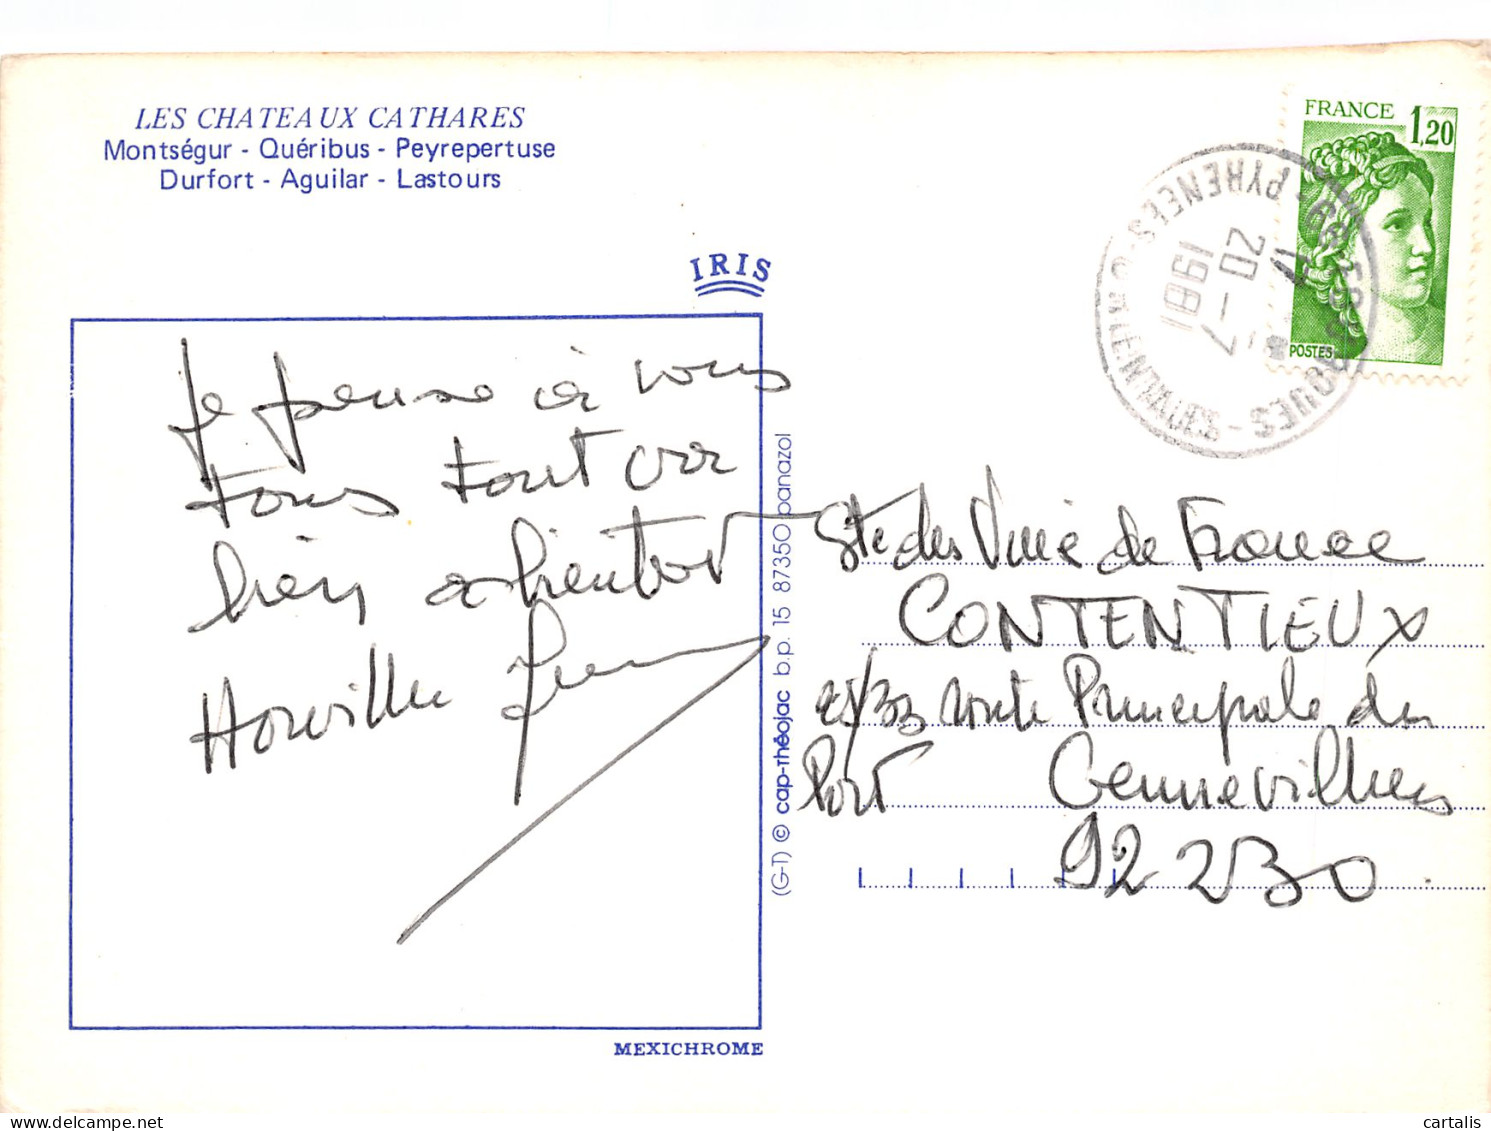 LES CHATEAUX CATHARES
Montségur - Quéribus - Peyrepertuse
Durfort - Aguilar - Lastours
IRIS
Je pense à vous
tous tout va
bien a bientot
Horville
MEXICHROME
(G-T) © cap-théojac b.p. 15 87350 panazol
FRANCE 1,20
POSTES
17
20-7
1981
PYRENEES-ORIENTALES
Sté des Vins de France
CONTENTIEUX
25/33 route Principale du
Port Gennevilliers
92230
cartalis